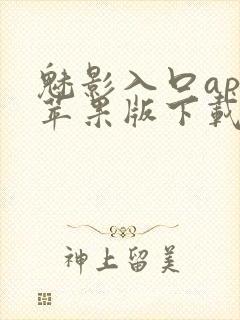 魅影入口ap
苹果版下载
神上留美